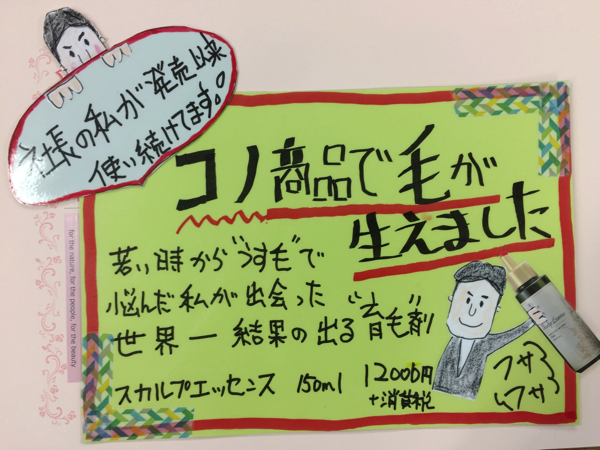 社長の私が発売以来
使い続けてます!
コノ商品で毛が
生えました
若い時から"うす毛"で
悩んだ私が出会った
世界一結果の出る"育毛"剤
スカルプエッセンス 150ml 12000円
+消費税
フサ
フサ
for the nature, for the people, for the beauty